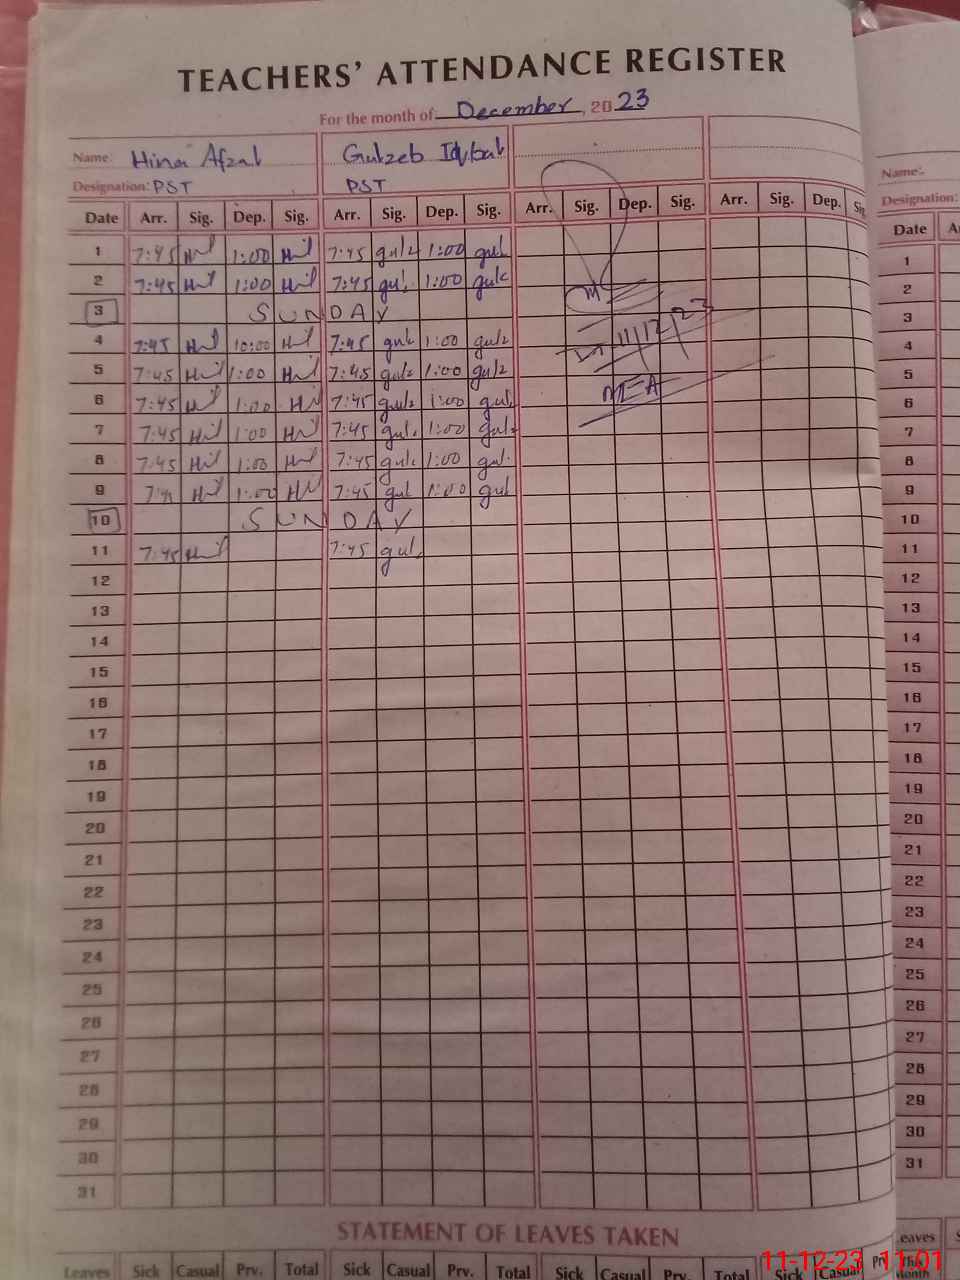 TEACHERS' ATTENDANCE REGISTER
For the month of December, 2023
Name: Hina Afzal Gulzeb Iqbal
Designation: PST PST
Date Arr. Sig. Dep. Sig. Arr. Sig. Dep. Sig. Arr. Sig. Dep. Sig. Arr. Sig. Dep. Sig.
1 7:45 1:00 7:45 gulz 1:00 gul
2 7:45 1:00 7:45 gul 1:00 gulz
3 SUNDAY
4 7:45 10:00 7:45 gul 1:00 gulz
5 7:45 1:00 7:45 gulz 1:00 gulz
6 7:45 1:00 7:45 gulz 1:00 gul
7 7:45 1:00 7:45 gul 1:00 gulz
8 7:45 1:00 7:45 gul 1:00 gul
9 7:45 1:00 7:45 gul 1:00 gul
10 SUNDAY
11 7:45 7:45 gul
11/12/23
MEA
12
13
14
15
16
17
18
19
20
21
22
23
24
25
26
27
28
29
30
31
STATEMENT OF LEAVES TAKEN
Leaves Sick Casual Prv. Total Sick Casual Prv. Total Sick Casual Prv. Total Sick Casual Prv.
Name:
Designation:
Date
1
2
3
4
5
6
7
8
9
10
11
12
13
14
15
16
17
18
19
20
21
22
23
24
25
26
27
28
29
30
31
Leaves
This
Month
11-12-23 11:01